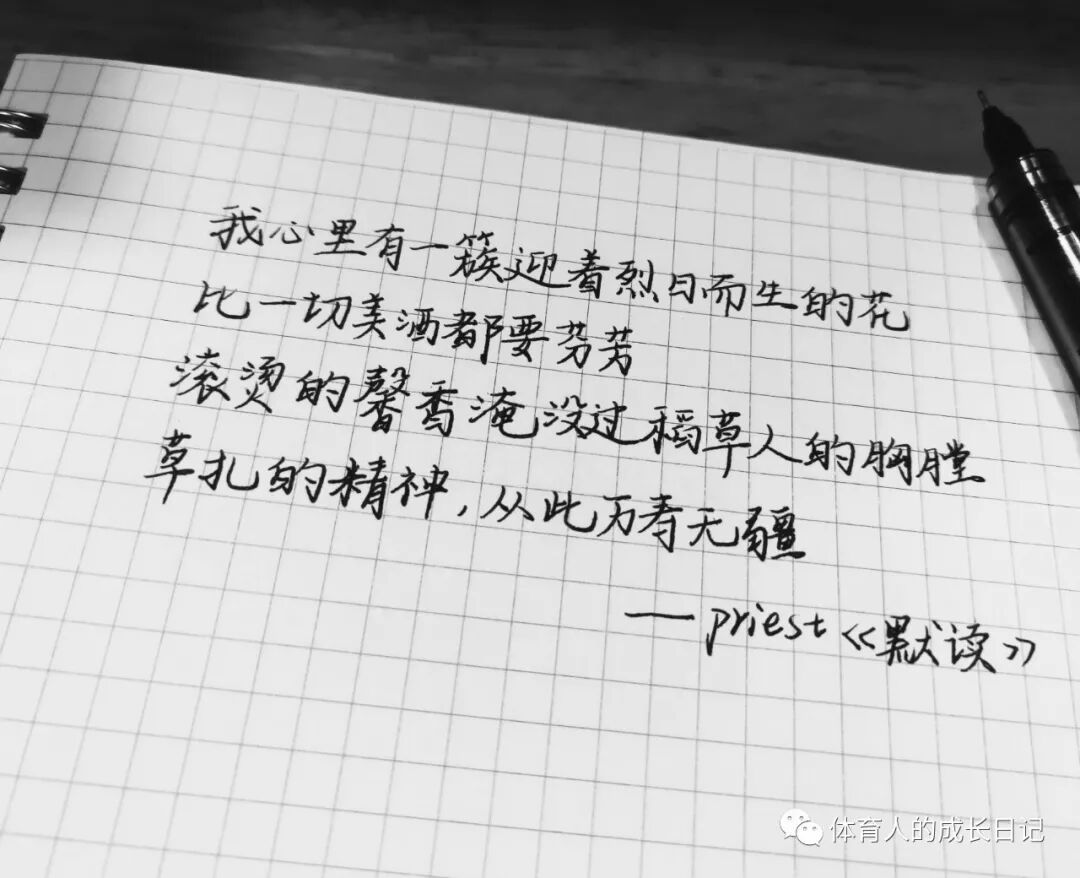 我心里有一簇迎着烈日而生的花
比一切美酒都要芬芳
滚烫的馨香淹没过稻草人的胸膛
草扎的精神，从此万寿无疆
——priest《默读》
体育人的成长日记